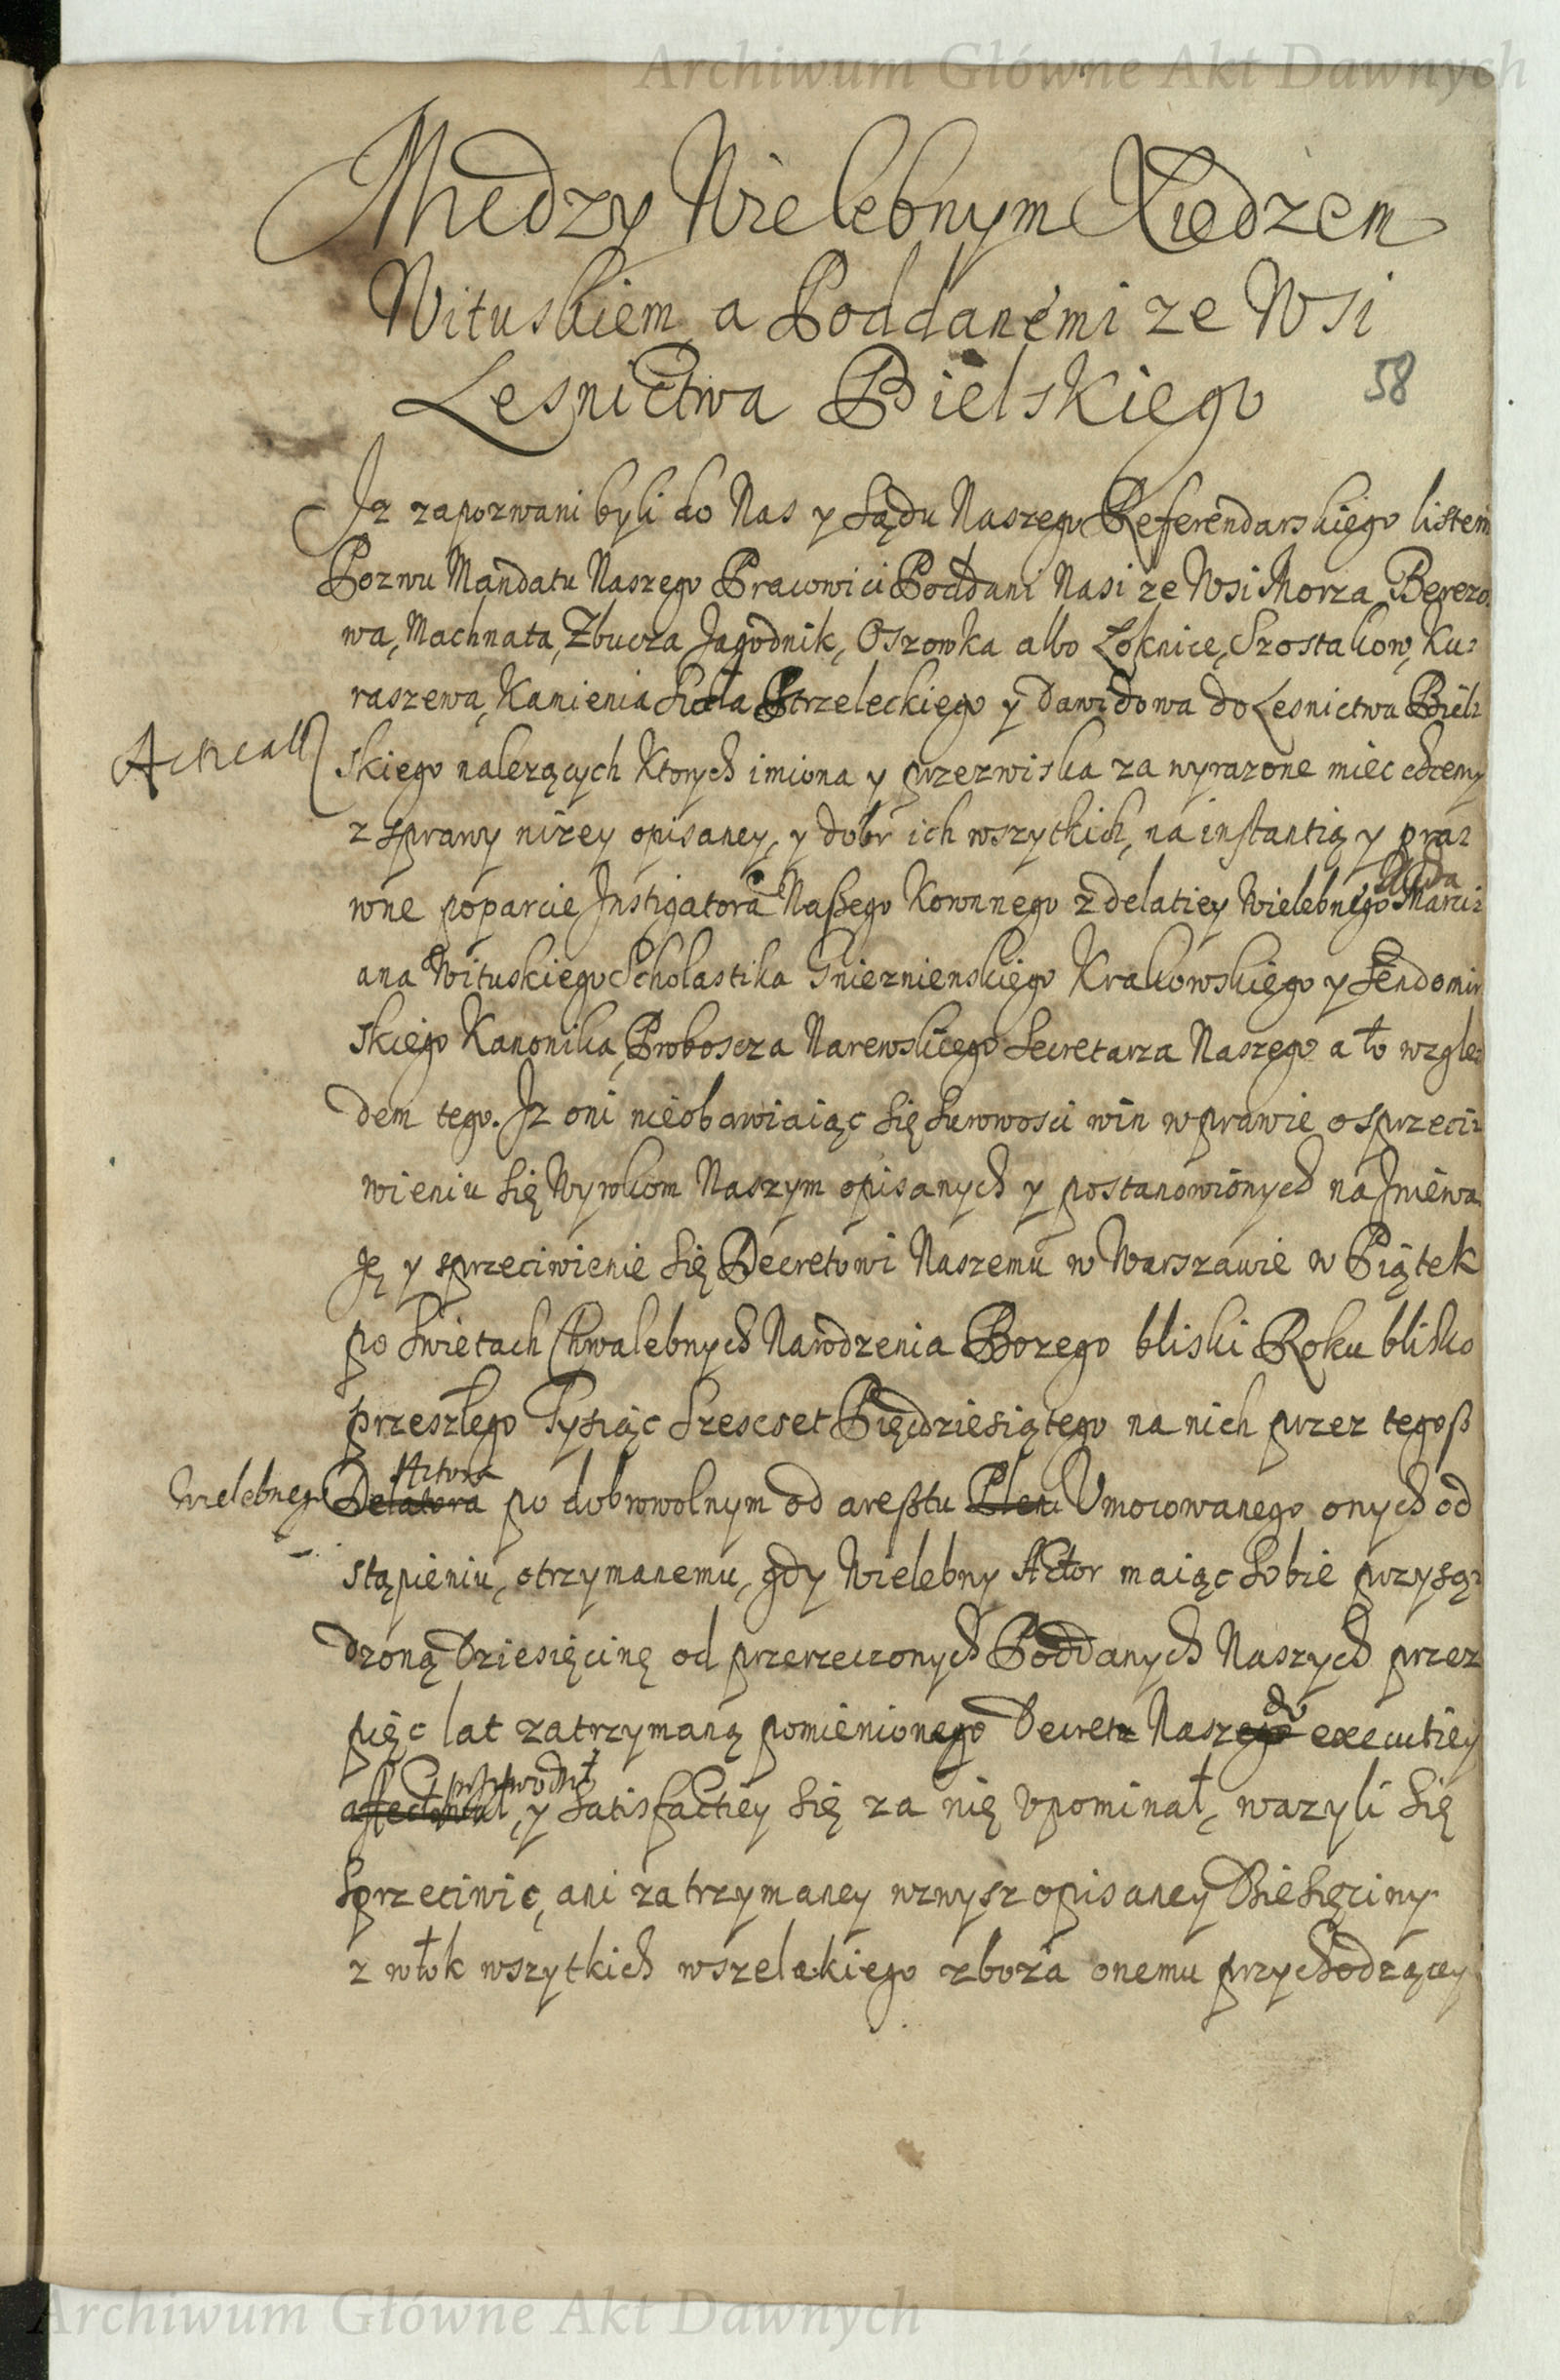 Archiwum Główne Akt Dawnych
Miedzy Wielebnym Xiędzem
Wituskiem a Poddanemi ze Wsi
Lesnictwa Bielskiego
58
Iz zapozwani byli do Nas y Sądu Naszego Referendarskiego listem
Pozwu Mandatu Naszego Pracowici Poddani Nasi ze Wsi Morza, Berezo-
wa, Machnata, Zbucza Jagodnik, Oszowka albo Loknice, Szostakow, Ku-
raszewa, Kamienia Sioła Strzeleckiego y Dawidowa do Lesnictwa Biel-
skiego nalezących Ktorych imiona y przezwiska za wyrazone miec chcemy
z sprawy nizey opisaney, y dobr ich wszytkich, na instantią y pra-
wne poparcie Instigatora Naßego Koronnego z delatiey Wielebnego Marci-
ana Wituskiego Scholastika Gnieznienskiego Krakowskiego y Sendomir
skiego Kanonika, Proboscza Narewskiego Secretarza Naszego a to wzglę-
dem tego. Iz oni nieobawiaiąc się surowosci win w prawie o sprzeci-
wieniu się Wyrokom Naszym opisanych y postanowionych na Zniewa
gę y sprzeciwienie się Decretowi Naszemu w Warszawie w Piątek
po Swietach Chwalebnych Narodzenia Bozego bliski Roku blisko
przeszłego Tysiąc Szescset Pięcdziesiątego na nich przez tegoß
Wielebnego Actora Delatora po dobrowolnym od areßtu Umocowanego onych od
stąpieniu, otrzymanemu, gdy Wielebny Actor maiąc sobie przysą-
dzoną Dziesięcinę od przerzeczonych Poddanych Naszych przez
pięc lat zatrzymaną pomienionego Decretu Naszego do executiey
przywodził, y satisfactiey się za nię upominał, wazyli się
sprzeciwic, ani zatrzymaney wzwysz opisaney Dziesięciny
z włok wszytkich wszelakiego zboza onemu przychodzącey
Archiwum Główne Akt Dawnych